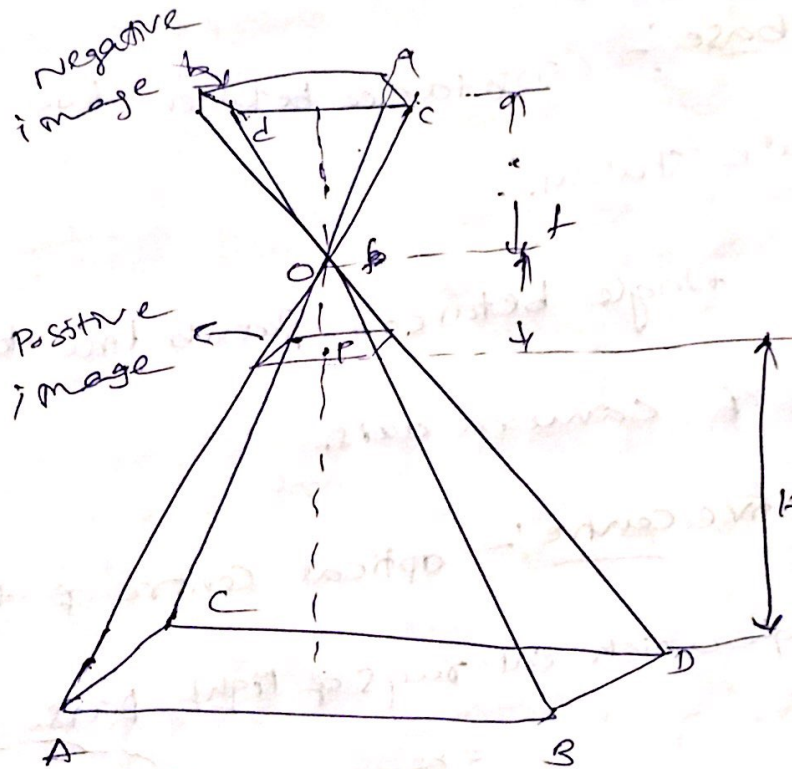 Negative
image
b
a
c
d
f
O
Positive
image
P
H
C
D
A
B